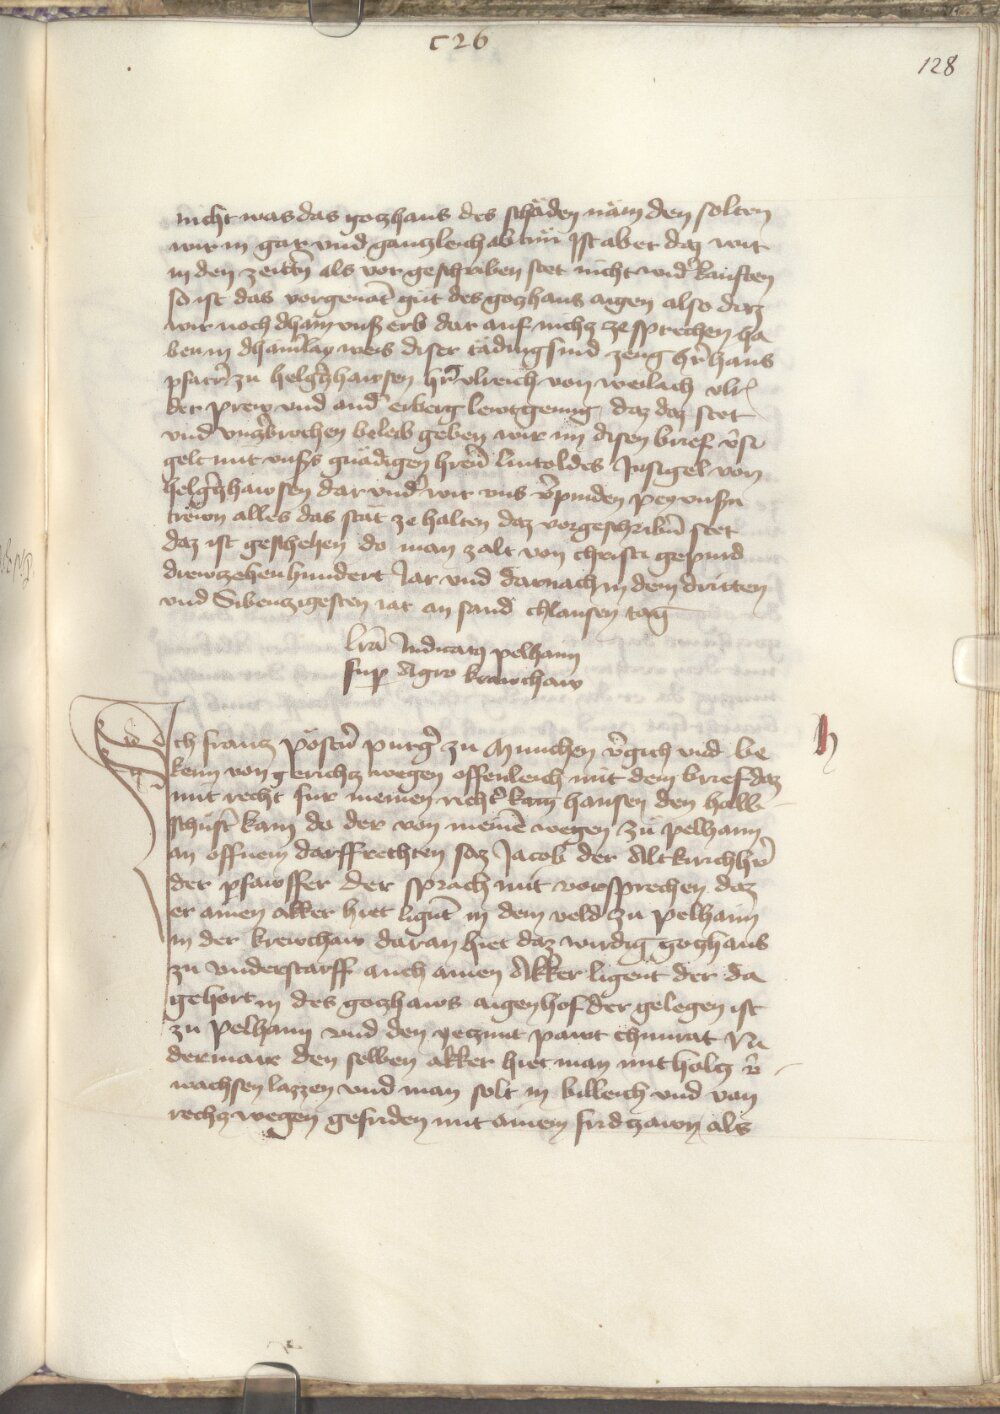 c26
128
nicht was das gotzhaus des schäden näm den solten
wir in gar vnd gantzleich ab tün Ist aber daz wir
in den zeittn̄ als vor geschriben stet nicht wid̄ kaufften
so ist das vorgenāt güt des gotzhaus aigen also daz
wir noch dhain vnß erb dar auf nichtz ze sprechen ha
ben in dhainlay weis diser täding sind zeug hr̄ hans
pfarr̄ zu helgh̄hawsen hr̄ vlreich von weilach vlr̄
der prew vnd and̄ erberg lewt genug daz daz stet
vnd vnzbrochen beleib geben wir im disen brief v̄si
gelt mit vnßs gnädigen hren̄ liutoldes Insigel von
helgh̄hawsen dar vnd̄ wir vns v̄pinden pey vnßn
trewn alles das stät ze halten daz vorgeschribn̄ stet
daz ist geschehen do man zalt von christi gepurd
drewtzehenhundert Jar vnd darnach in dem dritten
vnd Sibentzigesten iar an sand chlausen tag
lrā Iudicatꝫ pelhaim
sup̱ Agro krewchaw
Ich frantz pöstn̄ purḡ zu Munchen v̄gich vnd be
kenn von gerichtz wegen offenleich mit dem brief daz
mit recht fur meinen richt̄ kam hansen den halb
schüst̄ kam do der von meinē wegen zü pelhaim
an offnem darffrechten saz Jacob der Altkirchh̄r
der pfawffer der sprach mit vorsprechen daz
er ainen akker hiet ligūt in dem veld zu pelhaim
in der krewchaw daran hiet daz wirdig gotzhaus
zu vnderstarff auch ainen Akker ligent der da
gehort in des gotzhaws aigen hof der gelegen ist
zu pelhaim vnd den yetzunt pawt chunrat Ni
dermair den selben akker hiet man mit holtz v̄
wachsen lazzen vnd man solt in billeich vnd von
rechtz wegen gefriden mit ainem fridzawn als
h